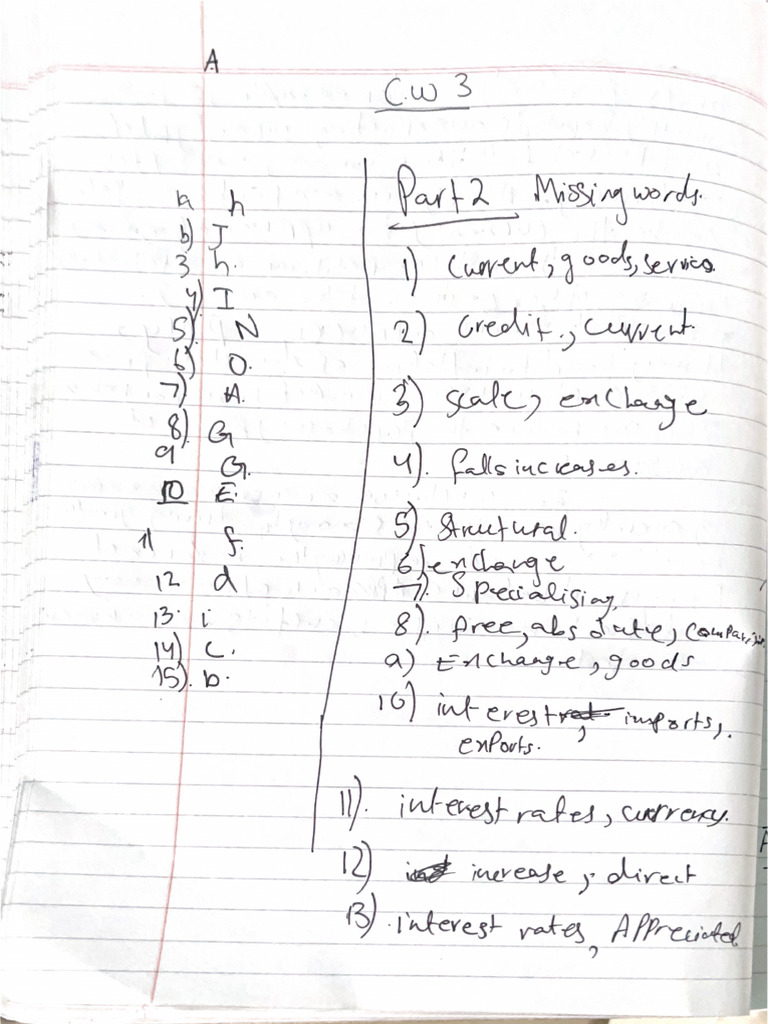 A
C.W 3
a h
b) J
3 h.
4) I
5) N
6) O.
7) A.
8) G
9 G.
10 E.
11 f.
12 d
13. i
14) c.
15). b.
Part 2 Missing words.
1) Current, goods, service.
2) credit, current.
3) scale, exchange
4). falls increases.
5) Structural.
6) exchange
7). Specialising,
8). free, absolute,
9) Exchange, goods
10) interest, imports,.
exports.
11). interest rates, currency.
12) increase, direct
13). interest rates, Appreciated